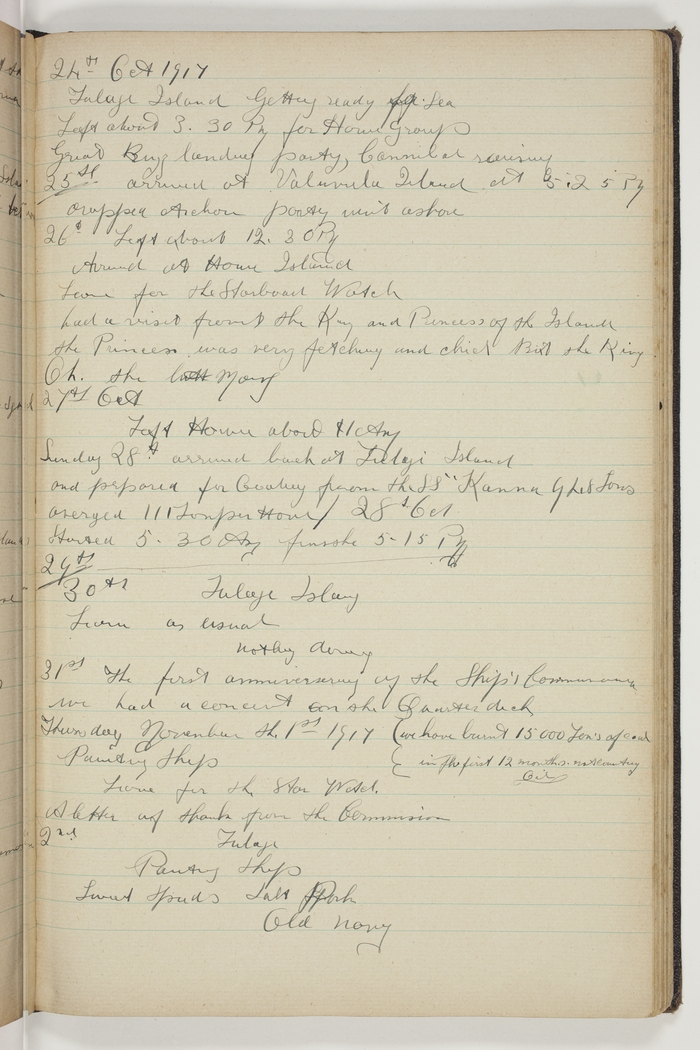 24th Oct 1917
Tulagi Island Getting ready for Sea
Left about 3.30 PM for Howe Groups
Great Bugz landing party, Cannibal
25th arrived at Island at 5.25 PM
dropped Anchor party went ashore
26th Left about 12.30 PM
Arrived at Howe Island
Leave for the Starboard Watch
had a visit from the King and Princess of the Islands
the Princess was very fetching and chick But the King
Oh. the
27th Oct
Left Howe about 11 AM
Sunday 28th arrived back at Tulagi Island
and prepared for Coaling from the SS "Kanna 928 Tons
averged 111 Tons per Hour / 28th Oct
Started 5.30 AM finishe 5-15 PM
29th
30th Tulagi Island
Leave as usual
nothing doing
31st The first anniversering of the Ship's
we had a concert on the Quarter deck
Thursday November the 1st 1917 (we have burnt 15000 Ton's of coal
Painting Ship { in the first 12 months. not counting
Oil
Leave for the Star Watch.
A letter of thanks from the Commission
2nd Tulagi
Painting Ship
Sweet Spuds Salt Pork
Old Navy